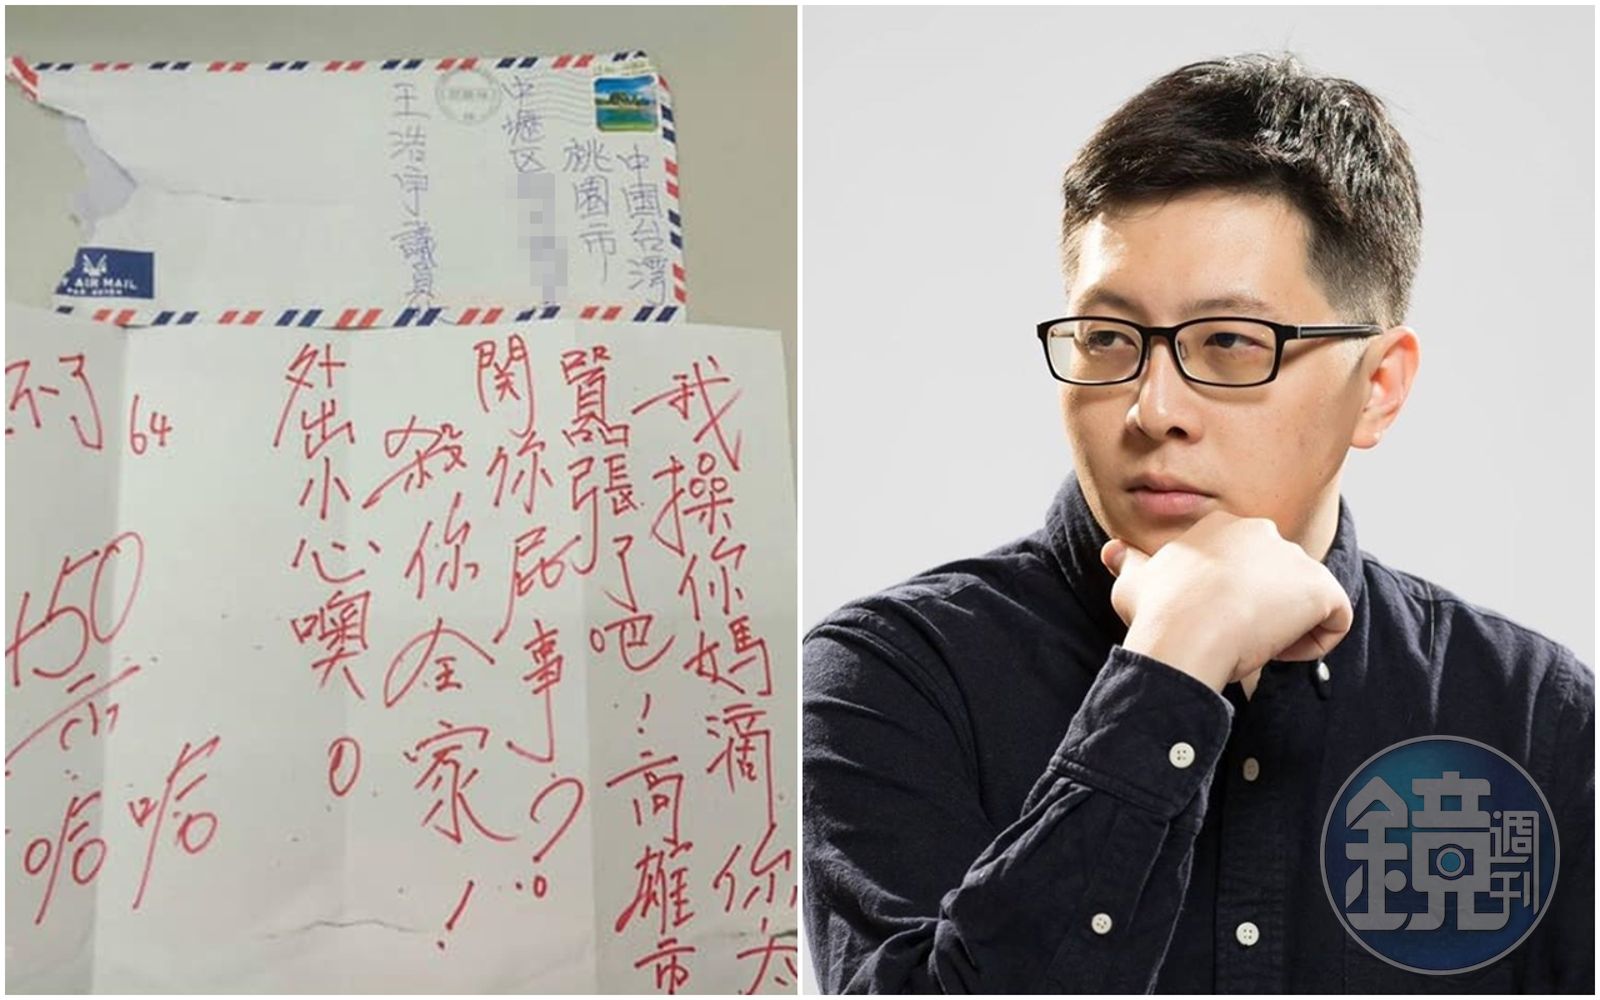 中國台灣
桃園市
中壢区
王浩宇議員
AIR MAIL
PAR AVION
我操你媽滴你太
囂張了吧！高雄市
関你屁事？
殺你全家！
外出小心噢。
64
哈
50
哈
鏡週刊